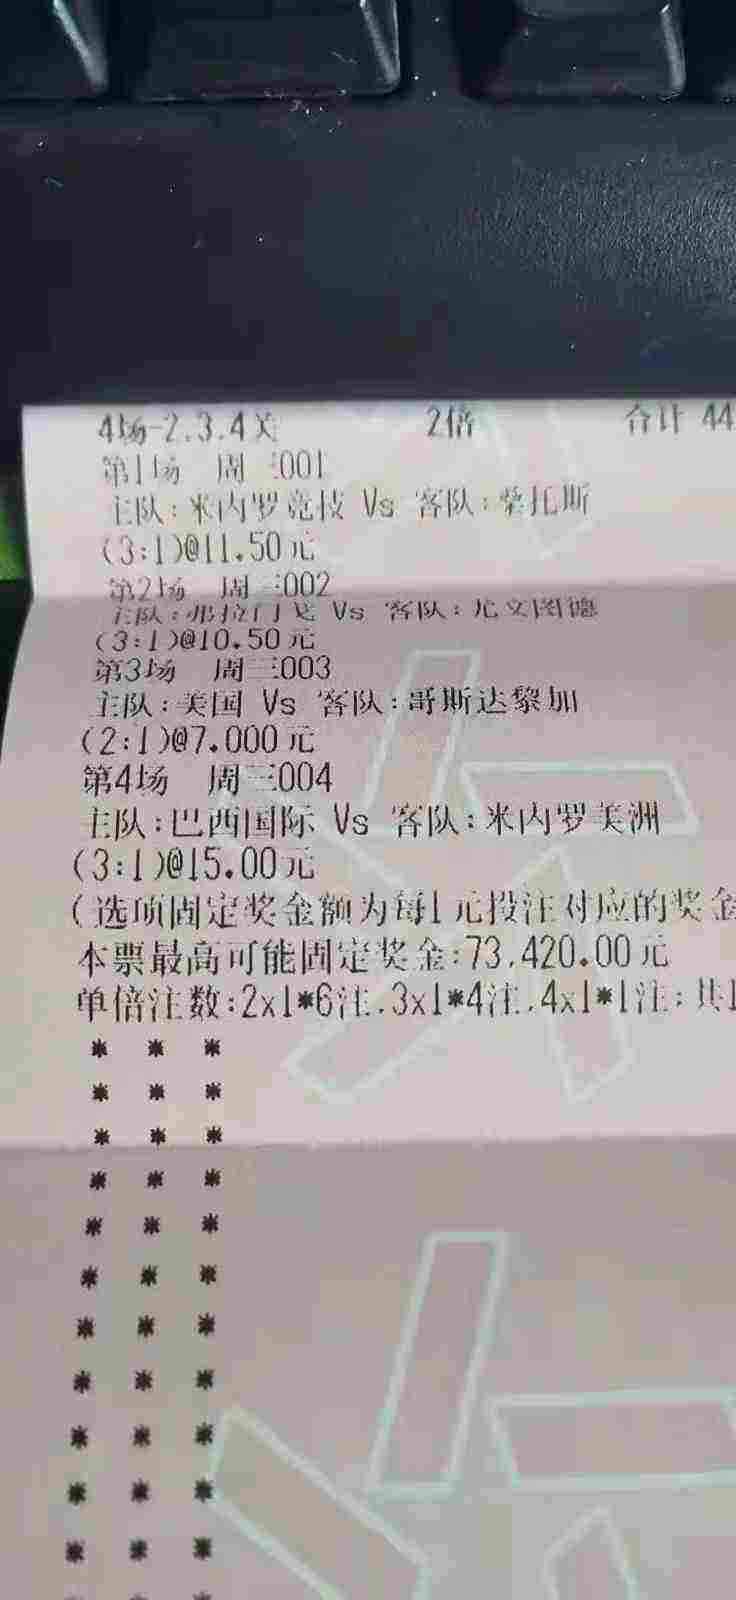 4场-2.3.4关 2倍 合计 44
第1场 周三001
主队:米内罗竞技 Vs 客队:桑托斯
(3:1)@11.50元
第2场 周三002
主队:弗拉门戈 Vs 客队:尤文图德
(3:1)@10.50元
第3场 周三003
主队:美国 Vs 客队:哥斯达黎加
(2:1)@7.000元
第4场 周三004
主队:巴西国际 Vs 客队:米内罗美洲
(3:1)@15.00元
(选项固定奖金额为每1元投注对应的奖金
本票最高可能固定奖金:73,420.00元
单倍注数:2x1*6注,3x1*4注,4x1*1注;共1
* * *
* * *
* * *
* * *
* * *
* * *
* * *
* * *
* * *
* * *
* * *
* * *